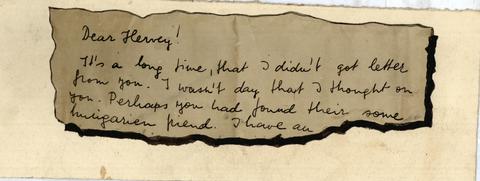 Dear Hervey!
It's a long time, that I didn't got letter
from you. I wasn't day that I thought on
you. Perhaps you had found their some
hungarien friend. I have an